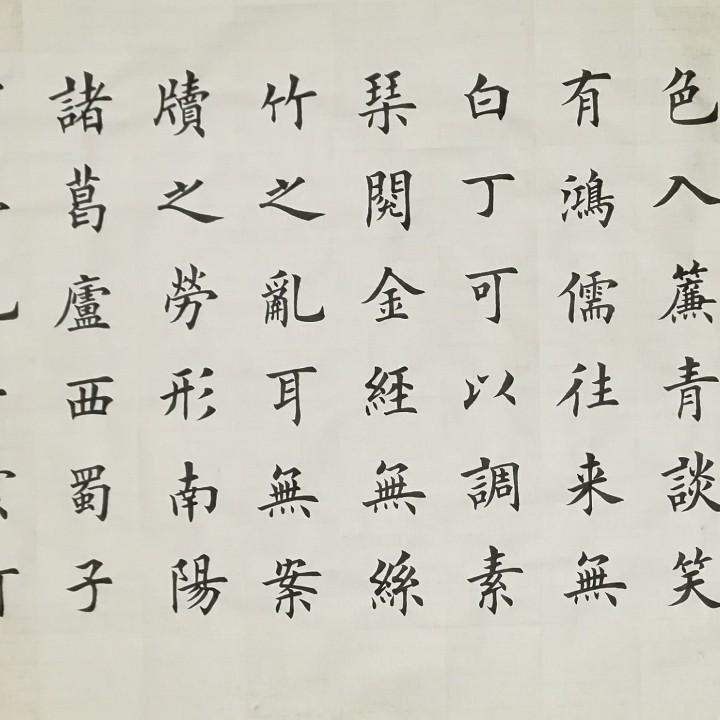 色入簾青談笑
有鴻儒往来無
白丁可以調素
琹閱金經無絲
竹之亂耳無案
牘之勞形南陽
諸葛廬西蜀子